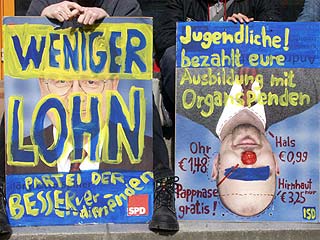 WENIGER
LOHN
PARTEI DER
BESSERverdienenden
SPD
Jugendliche!
bezahlt eure
Ausbildung mit
Organspenden
Ohr
€1,48
Hals
€0,99
Pappnase
gratis!
Hirnhaut
nur
€3,25
ISD